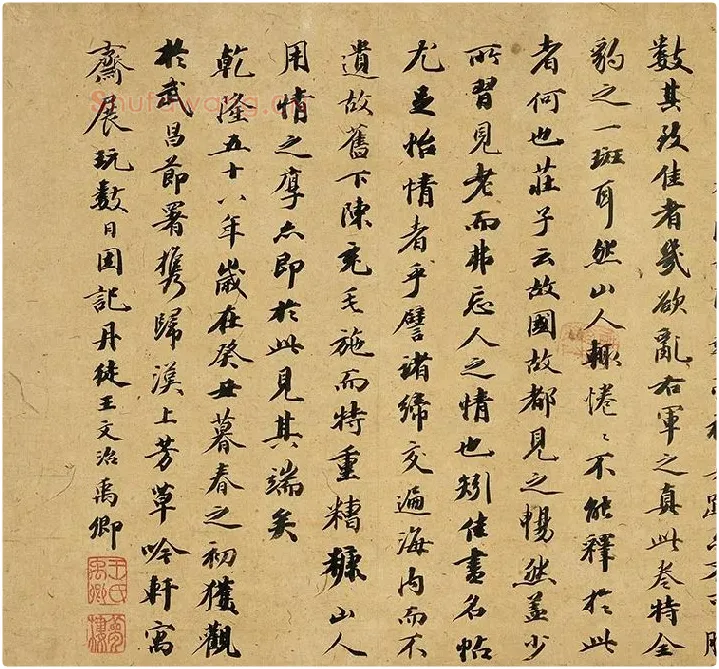 數其致佳者幾欲亂右軍之真此卷特全
豹之一斑耳然山人輒惓〻不能釋於此
者何也莊子云故國故都見之暢然蓋少
所習見老而非忘人之情也矧佳書名帖
尤足怡情者乎譬諸締交遍海内而不
遺故舊下陳充毛施而特重糟糠山人
用情之厚亦即於此見其端矣
乾隆五十八年歲在癸丑暮春之初獲觀
於武昌節署攜歸漢上芳草吟軒寓
齋展玩數日因記丹徒王文治禹卿
王氏禹卿
夢樓
Shufawang.cn